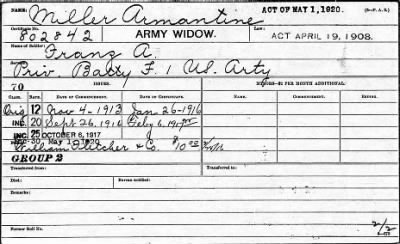 NAME: Miller Armantine ACT OF MAY 1, 1920. (S-P. A. S.)
Certificate No. 802842 ARMY WIDOW. Law, ACT APRIL 19, 1908.
Name of Soldier: Franz A.
Service: Priv. Batty F. 1 US. Arty
70 ISSUES. MINORS—$2 PER MONTH ADDITIONAL.
CLASS. RATE. DATE OF COMMENCEMENT. DATE OF CERTIFICATE.
Orig 12 Nov 4-1913 Jan 26-1916
INC. 20 Sept 26.1916 Feby 6.1917
INC. 25 OCTOBER 6, 1917
30 MAY 1 1920
William Fletcher & Co. $10
GROUP 2
Transferred from: Transferred to:
Died: Bureau notified:
Remarks:
Former Roll No. 2/2